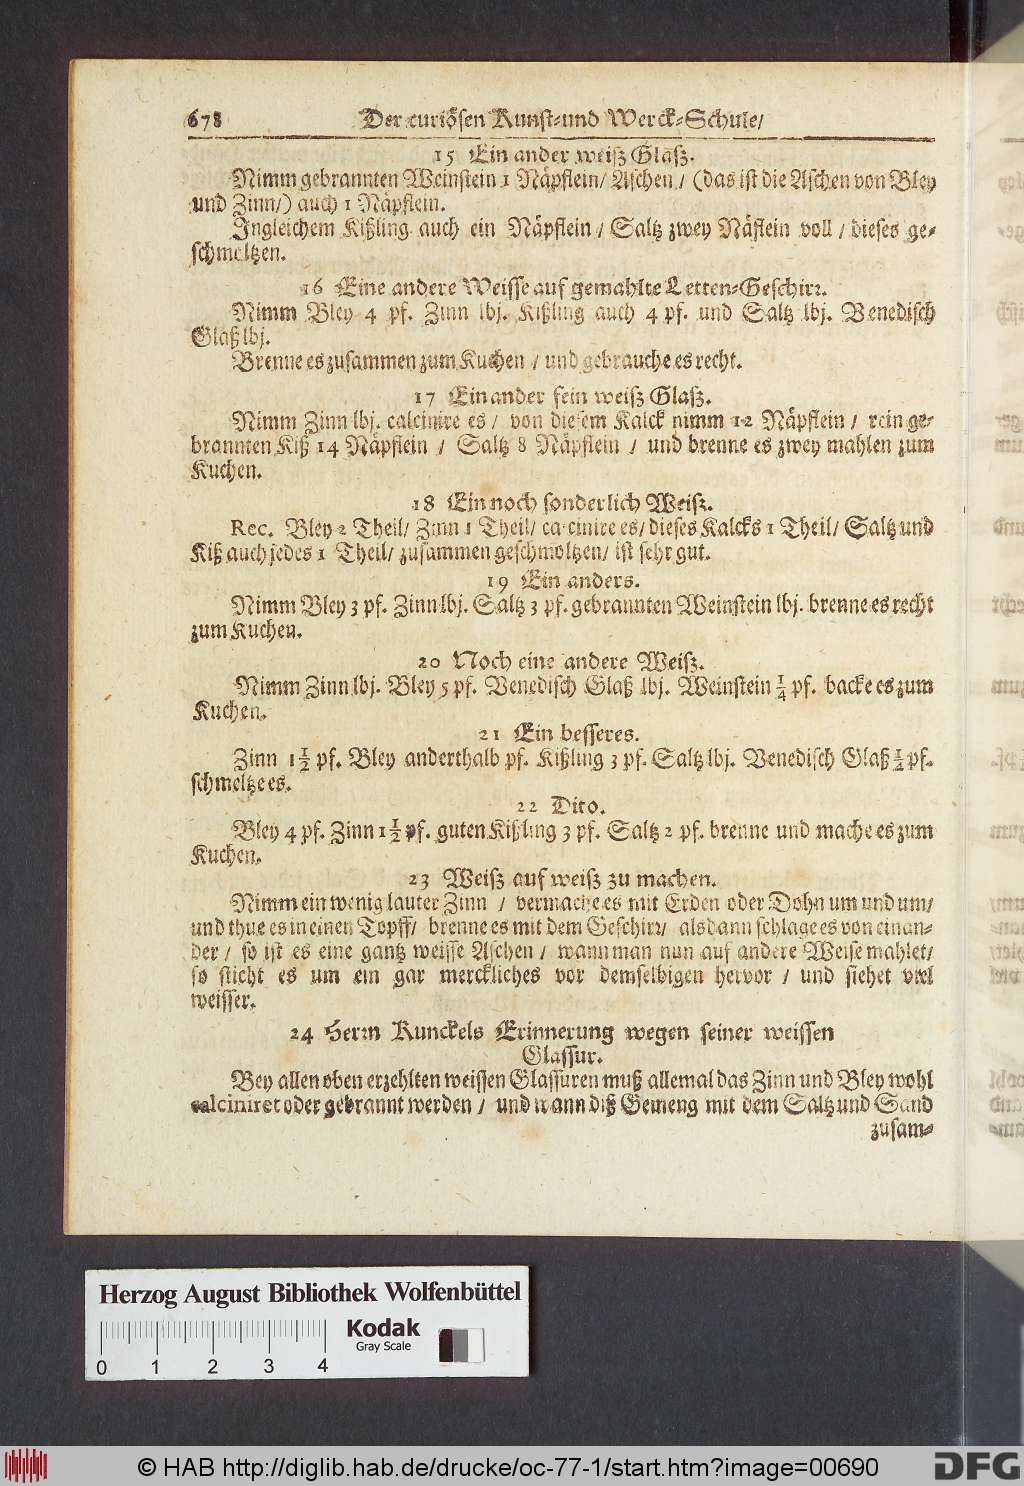 678 Der curiösen Kunst-und Werck-Schule/
15 Ein ander weiß Glaß.
Nimm gebrannten Weinstein 1 Näpflein/ Aschen/ (das ist die Aschen von Bley
und Zinn/) auch 1 Näpflein.
Ingleichem Kißling auch ein Näpflein/ Saltz zwey Näflein voll/ dieses ge-
schmeltzen.
16 Eine andere Weisse auf gemahlte Letten-Geschirr.
Nimm Bley 4 pf. Zinn lbj. Kißling auch 4 pf. und Saltz lbj. Venedisch
Glaß lbj.
Brenne es zusammen zum Kuchen/ und gebrauche es recht.
17 Ein ander fein weiß Glaß.
Nimm Zinn lbj. calcinire es/ von diesem Kalck nimm 12 Näpflein/ rein ge-
brannten Kiß 14 Näpflein/ Saltz 8 Näpflein/ und brenne es zwey mahlen zum
Kuchen.
18 Ein noch sonderlich Weiß.
Rec. Bley 2 Theil/ Zinn 1 Theil/ calcinire es/ dieses Kalcks 1 Theil/ Saltz und
Kiß auch jedes 1 Theil/ zusammen geschmoltzen/ ist sehr gut.
19 Ein anders.
Nimm Bley 3 pf. Zinn lbj. Saltz 3 pf. gebrannten Weinstein lbj. brenne es recht
zum Kuchen.
20 Noch eine andere Weiß.
Nimm Zinn lbj. Bley 5 pf. Venedisch Glaß lbj. Weinstein 1/4 pf. backe es zum
Kuchen.
21 Ein besseres.
Zinn 1 1/2 pf. Bley anderthalb pf. Kißling 3 pf. Saltz lbj. Venedisch Glaß 1/2 pf.
schmeltze es.
22 Dito.
Bley 4 pf. Zinn 1 1/2 pf. guten Kißling 3 pf. Saltz 2 pf. brenne und mache es zum
Kuchen.
23 Weiß auf weiß zu machen.
Nimm ein wenig lauter Zinn/ vermache es mit Erden oder Dohn um und um/
und thue es in einen Topff/ brenne es mit dem Geschirr/ alsdann schlage es von einan-
der/ so ist es eine gantz weisse Aschen/ wann man nun auf andere Weise mahlet/
so sticht es um ein gar merckliches vor demselbigen hervor/ und siehet viel
weisser.
24 Herrn Kunckels Erinnerung wegen seiner weissen
Glassur.
Bey allen oben erzehlten weissen Glassuren muß allemal das Zinn und Bley wohl
calciniret oder gebrannt werden/ und wann diß Gemeng mit dem Saltz und Sand
zusam-
Herzog August Bibliothek Wolfenbüttel
Kodak
Gray Scale
0 1 2 3 4
© HAB http://diglib.hab.de/drucke/oc-77-1/start.htm?image=00690
DFG